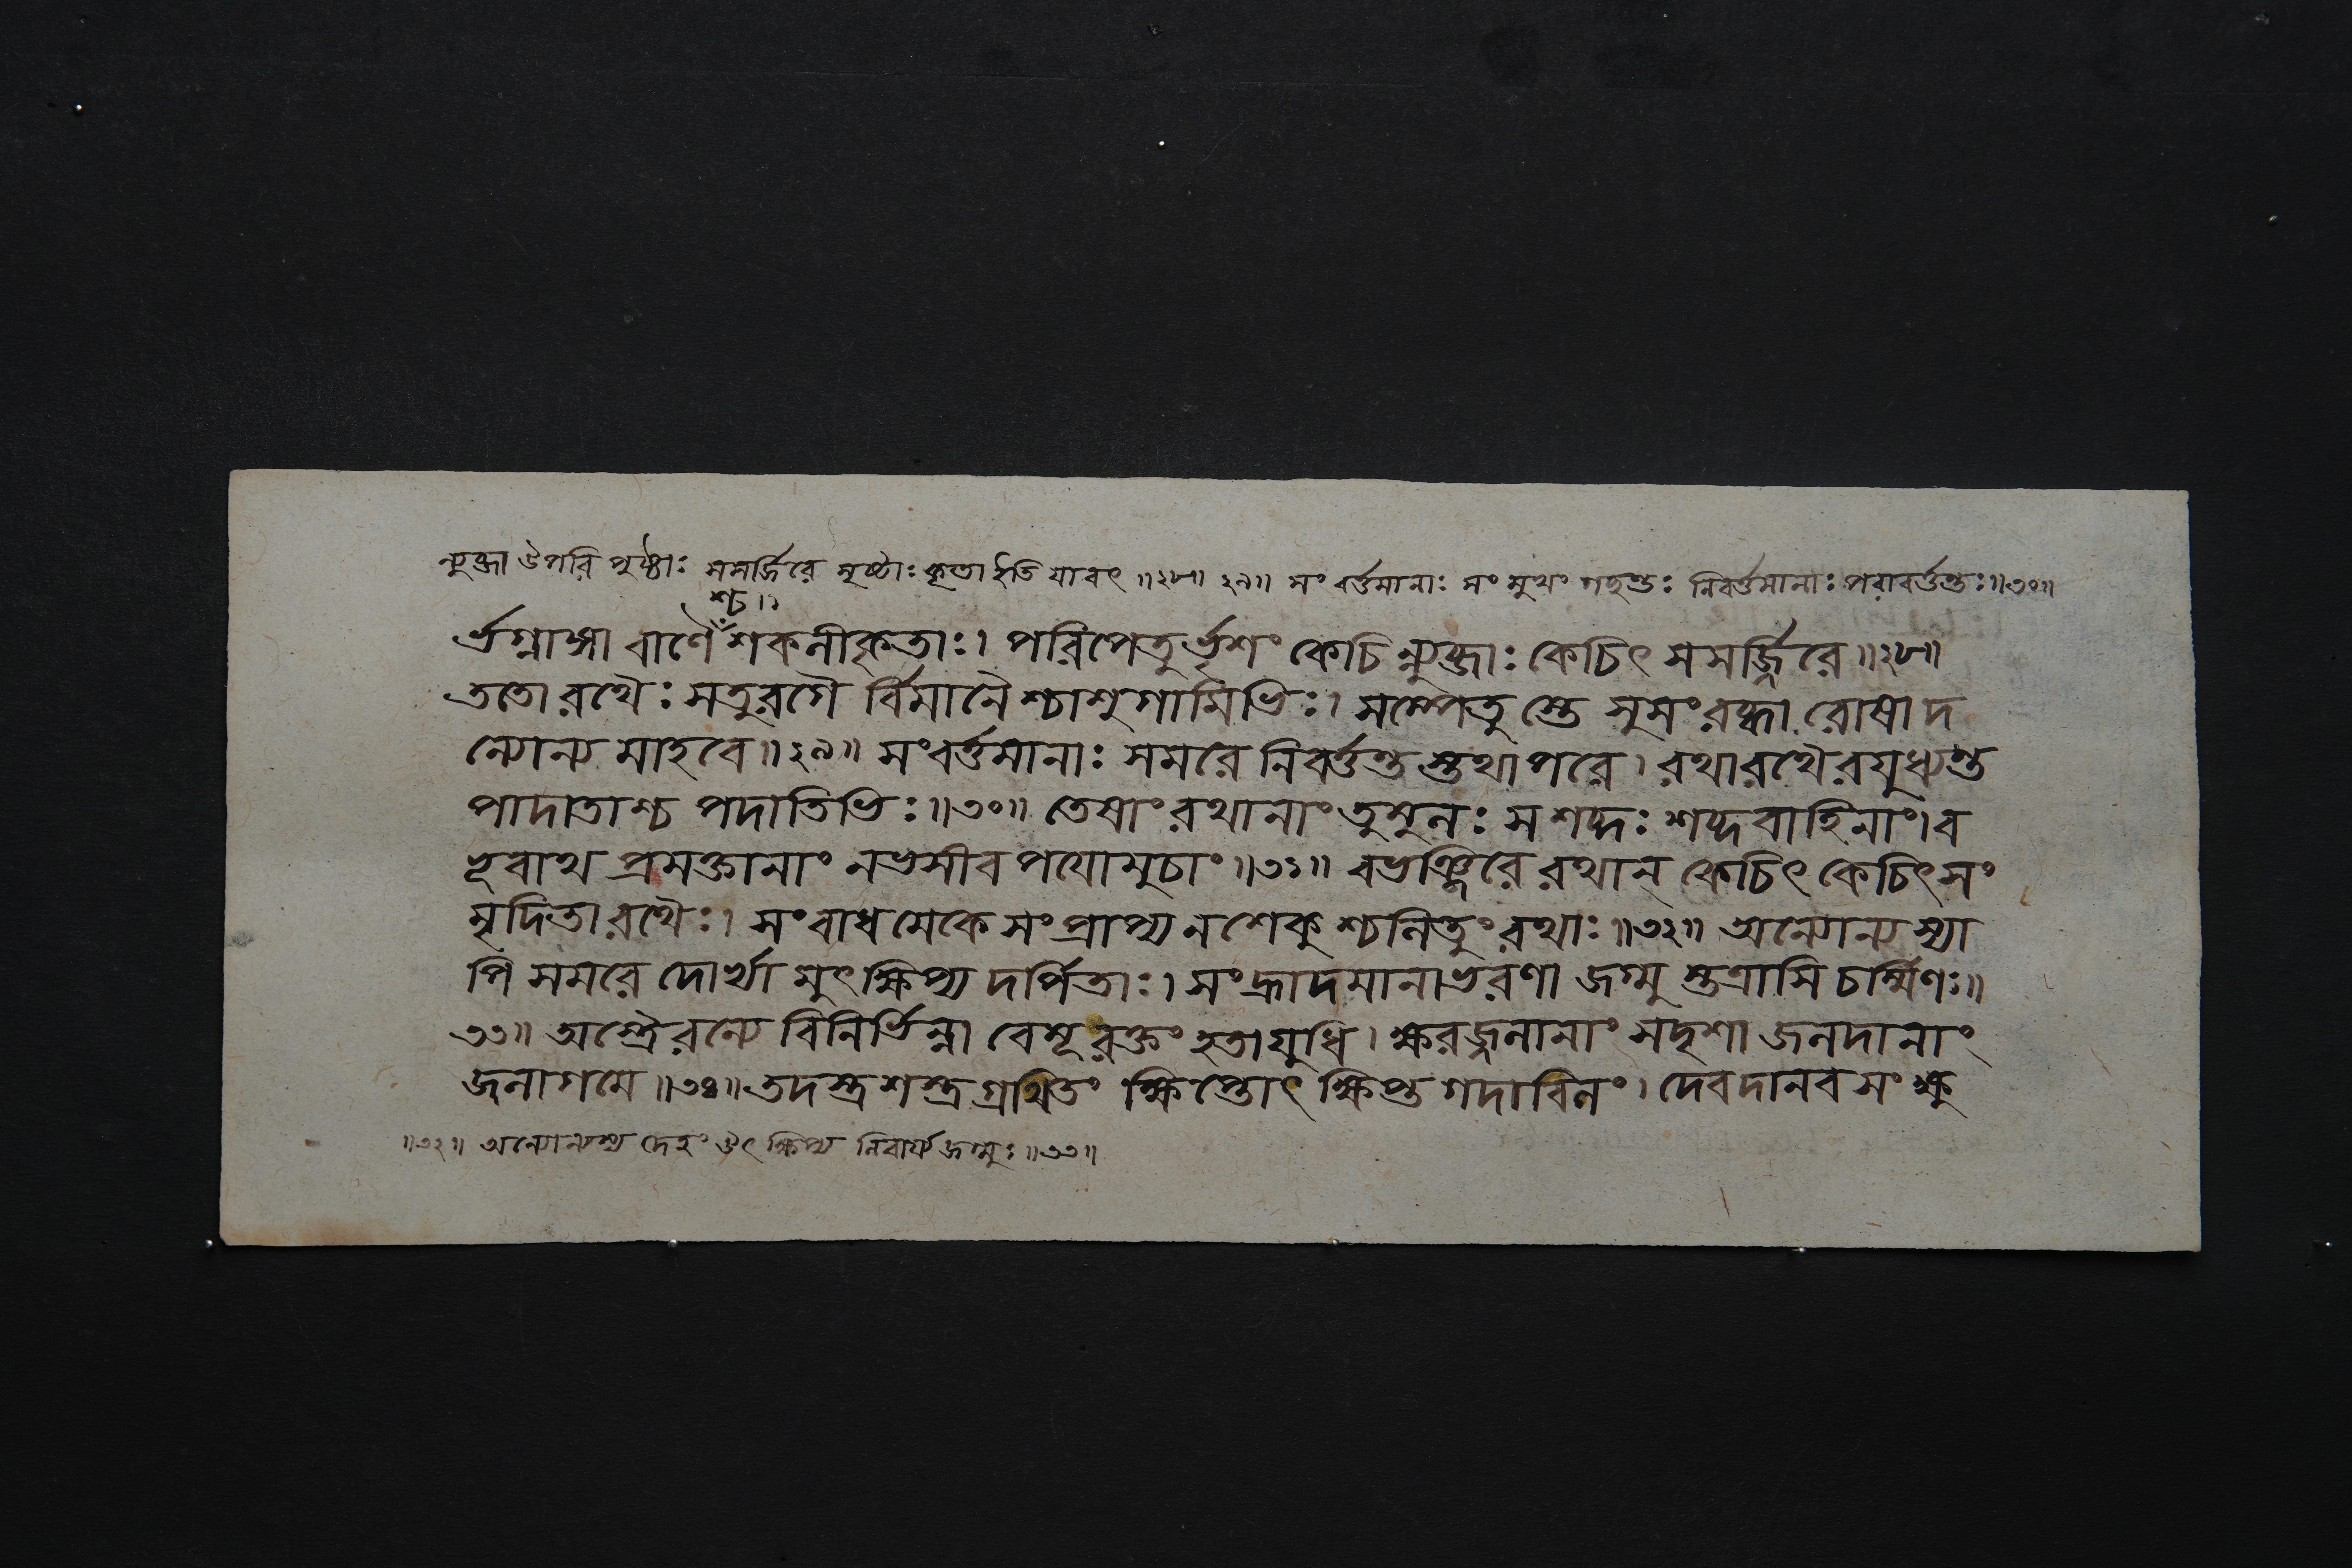 ন্যুব্জা উপরি পৃষ্ঠাঃ সসর্জ্জিরে সৃষ্টাঃ কৃতা ইতি যাবৎ ॥২৮॥ ২৯॥ সংবর্ত্তমানাঃ সংমুখং গচ্ছন্তঃ নিবর্ত্তমানাঃ পরাবর্ত্তন্তঃ॥৩০॥
শ্চ॥
র্ভগ্নাঙ্গা বাণৈ শকলীকৃতাঃ। পরিপেতুর্ভৃশং কেচিন্ন্যুব্জাঃ কেচিৎ সসর্জ্জিরে॥২৮॥
ততো রথৈঃ সতুরগৈ র্বিমানৈ শ্চাশুগামিভিঃ। সম্পেতু স্তে সুসংরব্ধা রোষাদ
ন্যোন্য মাহবে॥২৯॥ সংবর্ত্তমানাঃ সমরে নিবর্ত্তন্ত স্তথাপরে। রথারথৈরযুধ্যন্ত
পাদাতাশ্চ পদাতিভিঃ॥৩০॥ তেষাং রথানাং তুমুলঃ স শব্দঃ শব্দবাহিনাং। ব
ভূবাথ প্রসক্তানাং নভসীব পয়োমুচাং॥৩১॥ বভঞ্জিরে রথান্ কেচিৎ কেচিৎ সং
মৃদিতা রথৈঃ। সংবাধমেকে সংপ্রাপ্য ন শেকু শ্চলিতুং রথাঃ॥৩২॥ অন্যোন্যস্যা
পি সমরে দোর্ভ্যা মুৎক্ষিপ্য দর্পিতাঃ। সংহ্রাদমানাভরণা জগ্মু স্তত্রাসি চর্ম্মিণঃ॥
৩৩॥ অস্ত্রৈরন্যে বিনির্ভিন্না বেমূ রক্তং হতা যুধি। ক্ষরজ্জলানাং সদৃশা জলদানাং
জলাগমে॥৩৪॥ তদস্ত্রশস্ত্রগ্রথিতং ক্ষিপ্তোৎক্ষিপ্ত গদাবিলং। দেবদানব সংক্ষু
॥৩২॥ অন্যোন্যস্য দেহং উৎক্ষিপ্য নিবার্য্য জগ্মুঃ॥৩৩॥